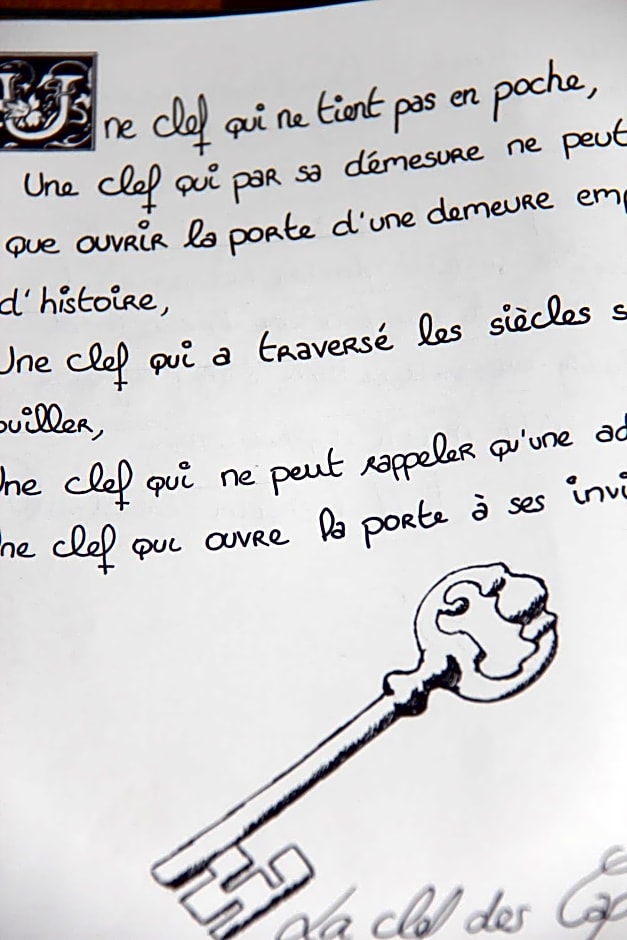 Une clef qui ne tient pas en poche,
Une clef qui par sa démesure ne peut
que ouvrir la porte d'une demeure
d'histoire,
Une clef qui a traversé les siècles
Une clef qui ne peut rappeler qu'une
clef qui ouvre la porte à ses
La clef des